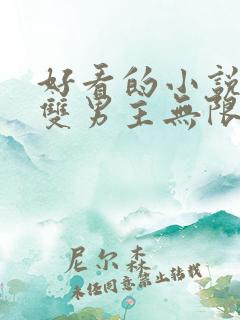 好看的小說
雙男主無限
尼尔森
未经同意禁止转载